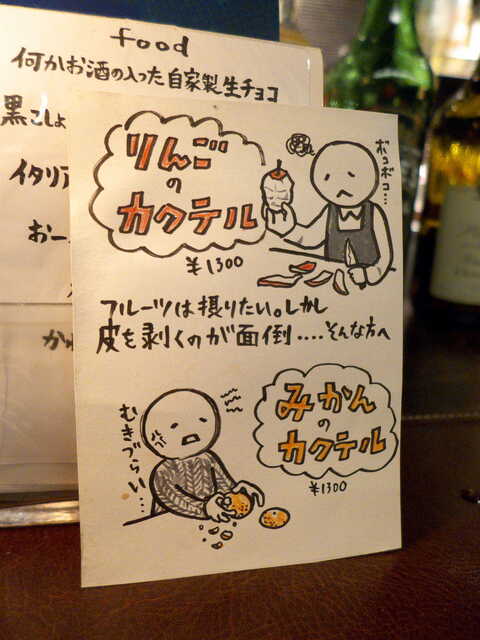 food
何かお酒の入った自家製生チョコ
黒こしょ
イタリア
おー
かわ
りんご
の
カクテル
¥1300
ボコボコ…
フルーツは摂りたい。しかし
皮を剥くのが面倒....そんな方へ
むきづらい…
みかん
の
カクテル
¥1300